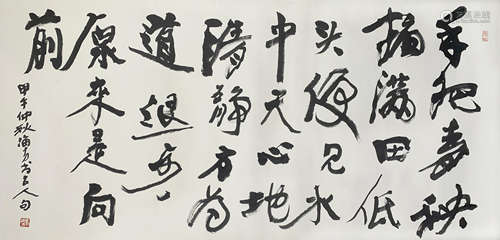 手把青秧
插满田低
头便见水
中天心地
清静方为
道退步
原来是向
前
甲午仲秋海 书古人句